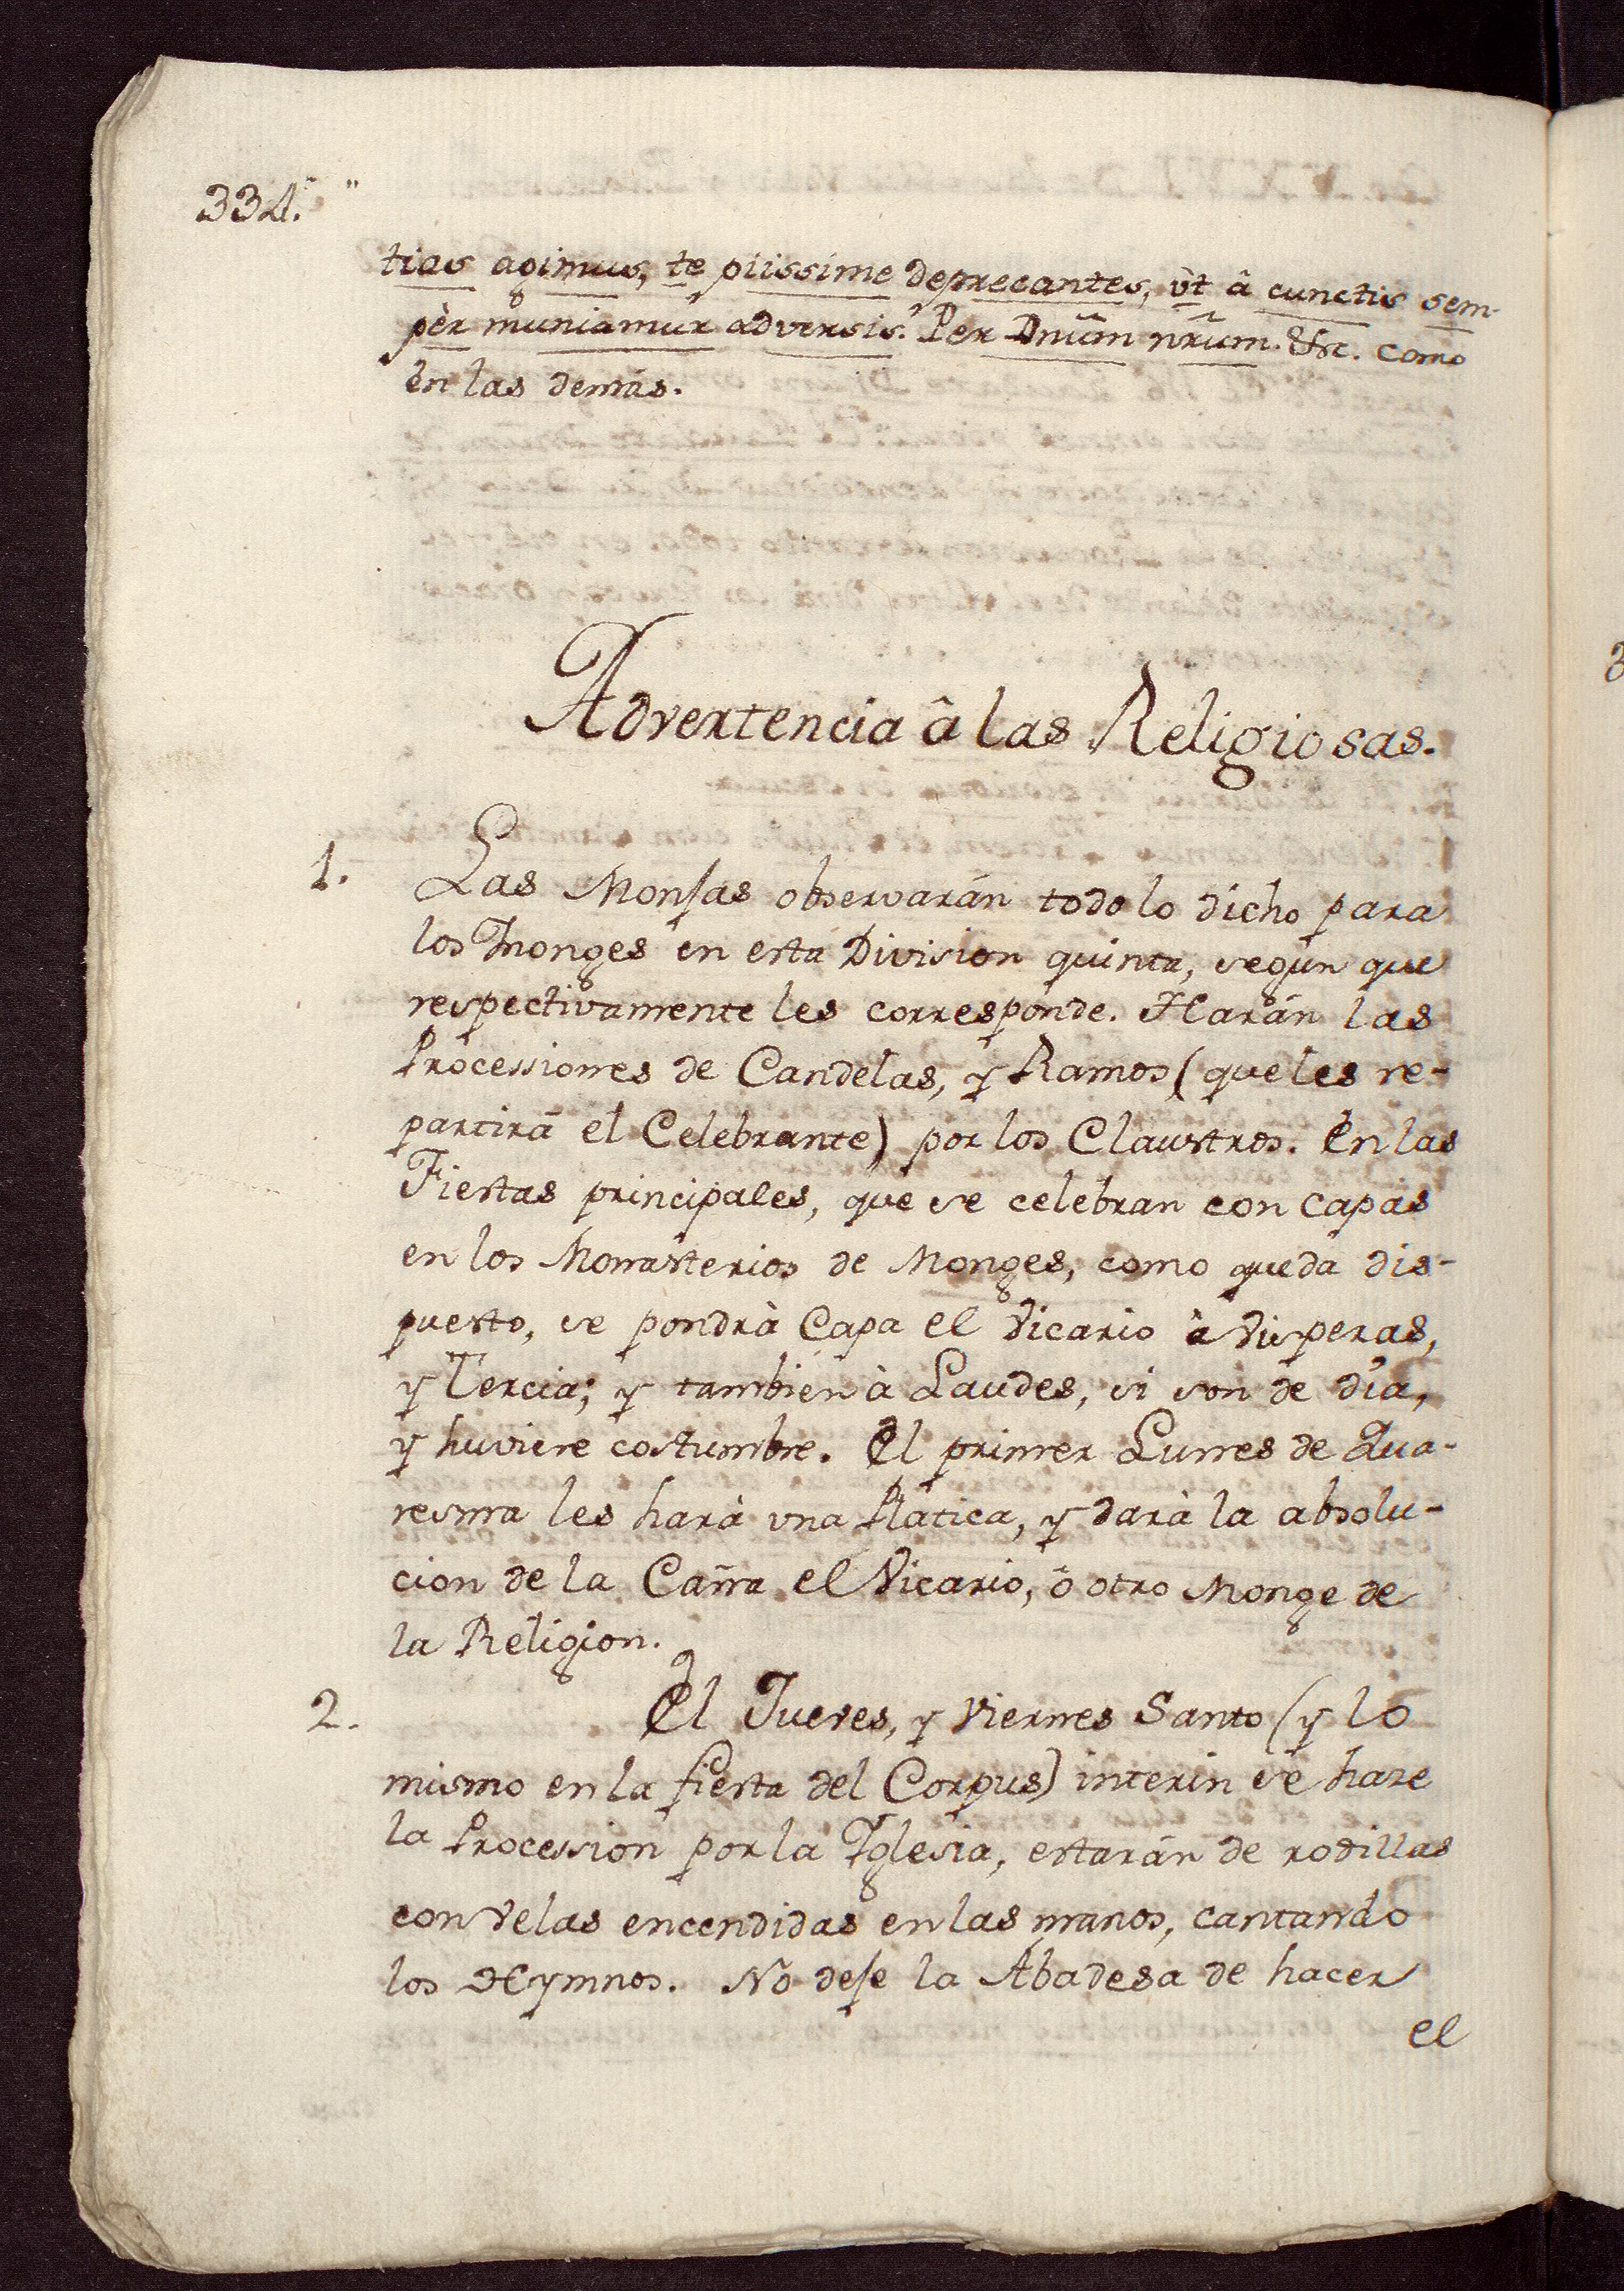 334.
tias agimus, te piissime deprecantes, ùt â cunctis sem-
pèr muniamur adversis. Per Dnũm nr̃um. &c. como
en las demás.
Advertencia â las Religiosas.
1. Las Monjas observarán todo lo dicho para
los Monges en esta Division quinta, segun que
respectivamente les corresponde. Harán las
Processiones de Candelas, y Ramos (que les re-
partirá el Celebrante) por los Claustros. En las
Fiestas principales, que se celebran con capas
en los Monasterios de Monges, como queda dis-
puesto, se pondrà Capa el Vicario à Visperas,
y Tercia; y tambien à Laudes, si son de dia,
y huviere costumbre. El primer Lunes de Qua-
resma les harà una Platica, y darà la absolu-
cion de la Caña el Vicario, ô otro Monge de
la Religion.
2. El Jueves, y Viernes Santo (y lo
mismo en la fiesta del Corpus) interin se haze
la Procession por la Iglesia, estarán de rodillas
con velas encendidas en las manos, cantando
los Hymnos. No deje la Abadesa de hacer
el